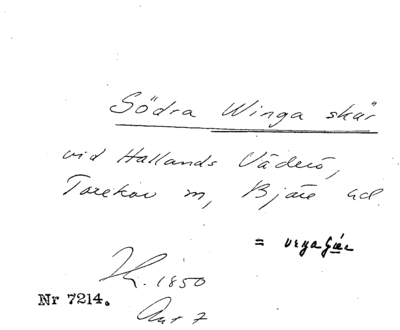 Södra Winga skär
vid Hallands Väderö,
Torekov m, Bjäre hd.
=
1850
Nr 7214.